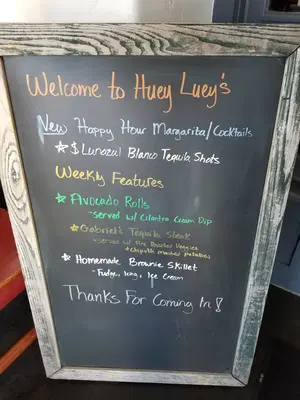 Welcome to Huey Luey's
New Happy Hour Margarita/Cocktails
$ Lunazul Blanco Tequila Shots
Weekly Features
Avocado Rolls
- Served w/ Cilantro Cream Dip
Gabriel's Tequila Steak
- Served w/ Fire Roasted Veggies
+ Chipotle mashed potatoes
Homemade Brownie Skillet
- Fudge, Icing, Ice Cream
Thanks For Coming In!